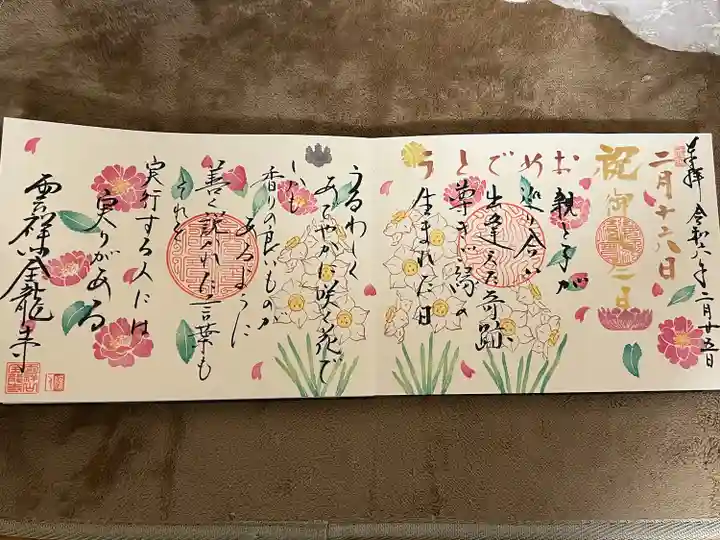 奉拝 令和六年二月廿五日
二月十六日
祝御誕生日
おめでとう
親と子が
巡り合い
出逢えた奇跡
尊き縁の
生まれた日
うるわしく
あでやかに咲く花で
しかも
香りの良いものが
あるように
善く説かれた言葉も
それを
実行する人には
実りがある
雲祥山全龍寺